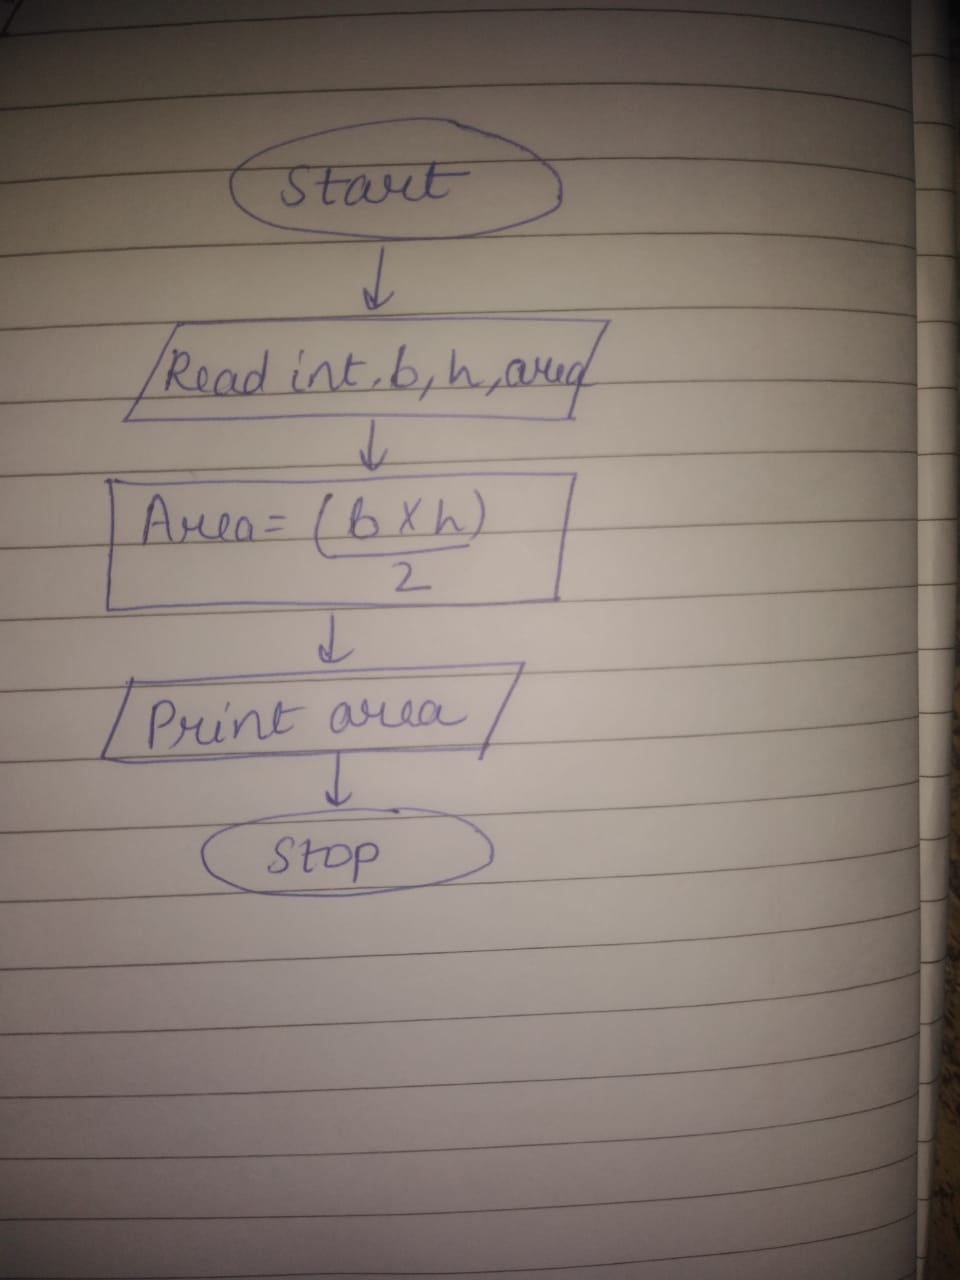 Start
Read int, b, h, area
Area = (b x h)
2
Print area
Stop